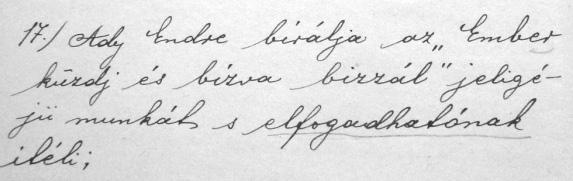 17./ Ady Endre birálja az „Ember
küzdj és bizva bizzál" jeligé-
jü munkát s elfogadhatónak
itéli;